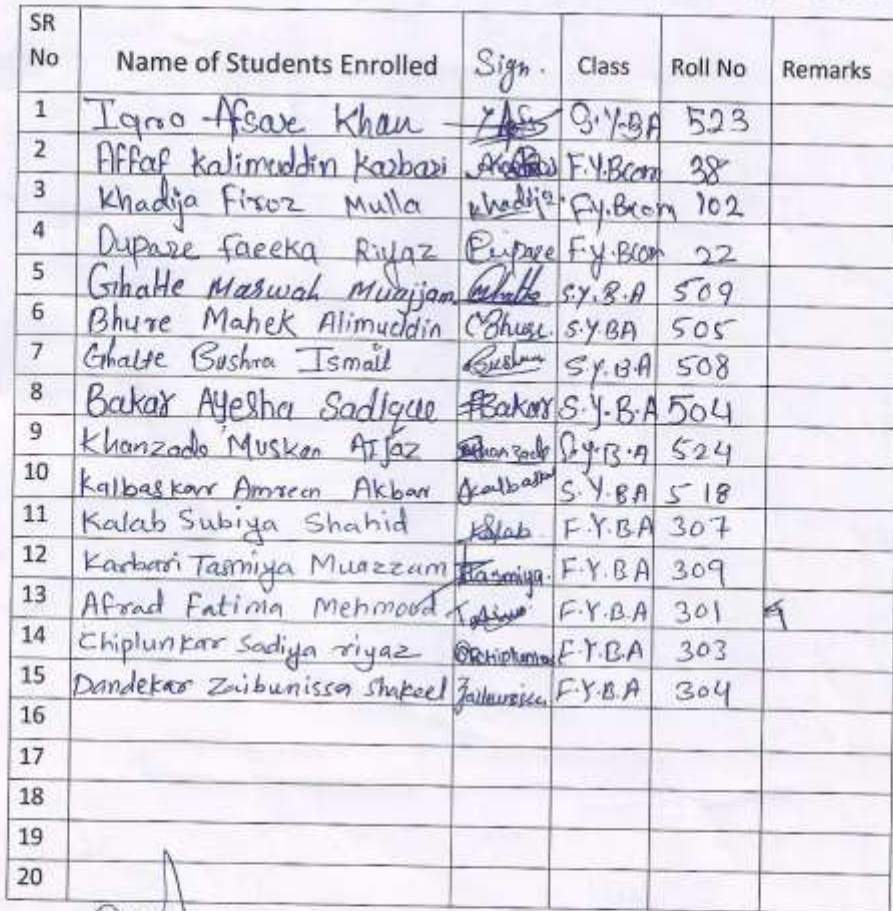 SR No Name of Students Enrolled Sign. Class Roll No Remarks
1 Iqra Afsar Khan S.Y.BA 523
2 Affaf Kalimuddin Karbari F.Y.Bcom 38
3 Khadija Firoz Mulla Khadija F.y.Bcom 102
4 Dupare faeeka Riyaz Dupare F.y.Bcom 22
5 Ghatte Marwah Muajjam Ghatte S.Y.B.A 509
6 Bhure Mahek Alimuddin Bhure S.Y BA 505
7 Ghatte Bushra Ismail Bushra S.Y.B.A 508
8 Bakar Ayesha Sadique Bakar S.Y.B.A 504
9 Khanzada Muskan Aijaz Khanzada S.Y.B.A 524
10 Kalbaskar Amreen Akbar Kalbaskar S.Y.BA 518
11 Kalab Subiya Shahid Kalab F.Y.BA 307
12 Karbari Tasmiya Muazzam Tasmiya. F.Y.BA 309
13 Afrad Fatima Mehmood F.Y.B.A 301
14 Chiplunkar Sadiya riyaz F.Y.B.A 303
15 Dandekar Zaibunissa Shakeel Zaibunissa F.Y.B.A 304
16
17
18
19
20